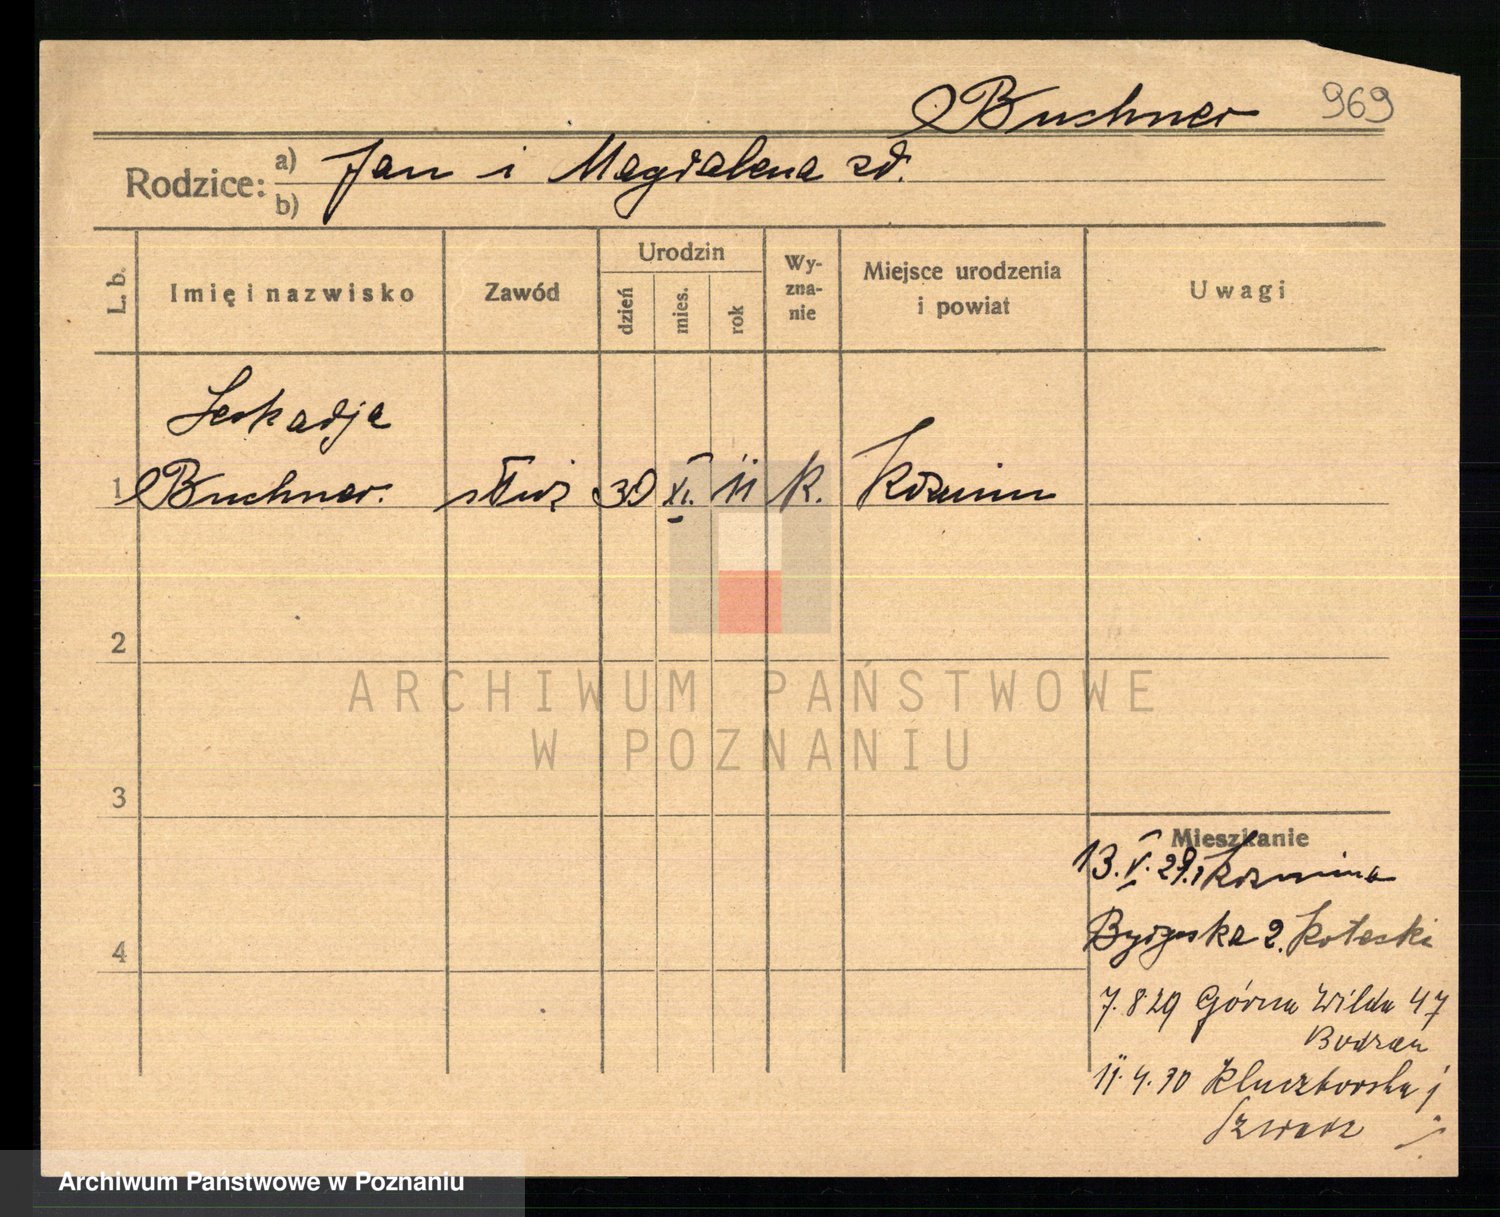 Buchner 969
Rodzice: a) Jan i Magdalena zd.
b)
L. b. Imię i nazwisko Zawód Urodzin dzień mies. rok Wy-zna-nie Miejsce urodzenia i powiat Uwagi
Leokadja
1 Buchner. służ 30 XI. 11 k. Kozmin
2
ARCHIWUM PAŃSTWOWE
W POZNANIU
3
Mieszkanie
13. V. 29. z Kozmina
4 2.
7. 8 29 Górna Wilda 47
11. 4. 30 Kluczborska
Archiwum Państwowe w Poznaniu